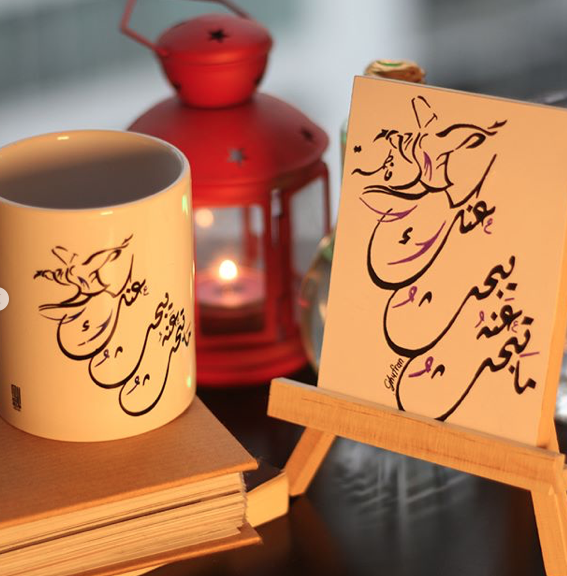 ما تبحثُ عنهُ يبحثُ عنك
ما تبحثُ عَنهُ يبحثُ عنك
Ghufran